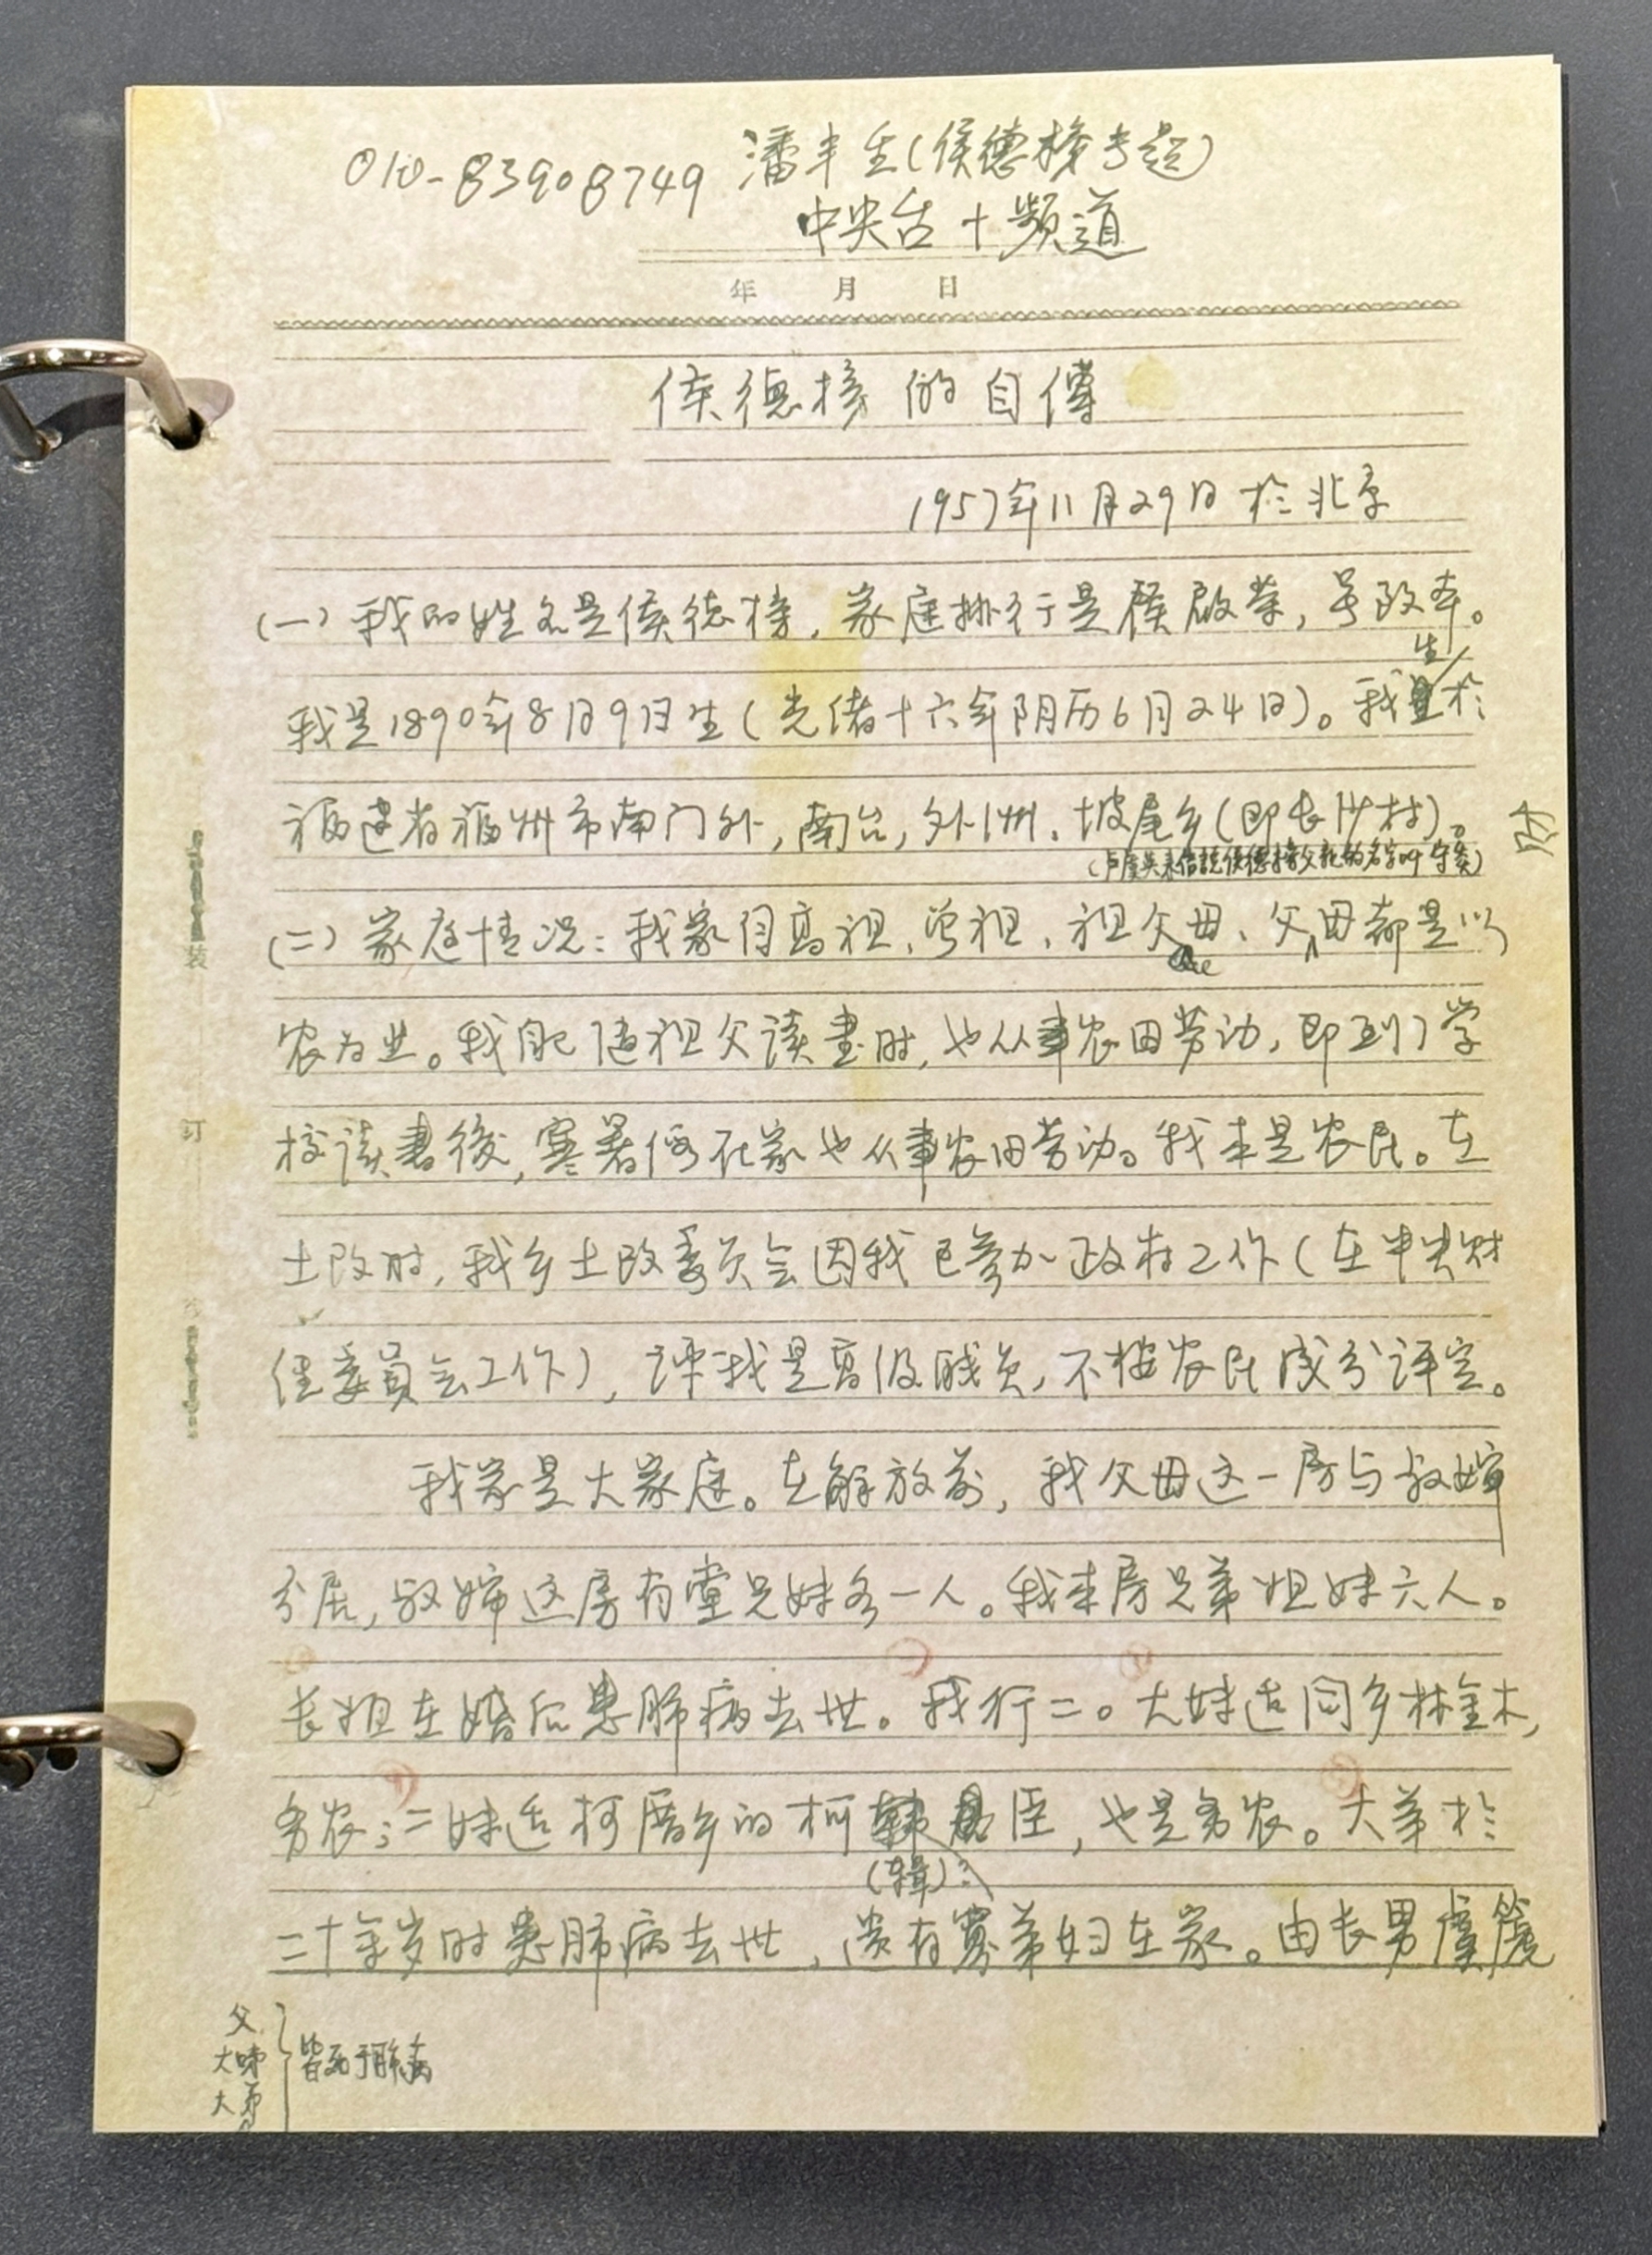 010-83908749 潘丰生(侯德榜专题)
中央台十频道
年 月 日
侯德榜的自傳
1957年11月29日於北京
(一)我的姓名是侯德榜,家庭排行是侯啟荣,号致本。
生
我是1890年8月9日生(光绪十六年阴历6月24日)。我於
福建省福州市南门外,南台,外洲,坡尾乡(即长沙村)。
(卢虞英来信說侯德榜父親的名字叫守)
(二)家庭情况:我家自高祖、曾祖、祖父母、父母都是以
农为业。我能随祖父读書时,也从事农田劳动,即到了学
校读書後,寒暑假在家也从事农田劳动。我本是农民。在
土改时,我乡土改委员会因我已参加政府工作(在中央财
经委員会工作),评我是高级职员,不按农民成分评定。
我家是大家庭。在解放前,我父母这一房与叔婶
分居,叔婶这房有堂兄妹各一人。我本房兄弟姐妹六人。
长姐在婚后患肺病去世。我行二。大妹适同乡林金木,
务农;二妹适柯厝乡的柯臣,也是务农。大弟於
(辑)
二十余岁时患肺病去世,尚有寡弟妇在家。由长男虞篪
父
大姊
大弟
皆死于肺病
装
订